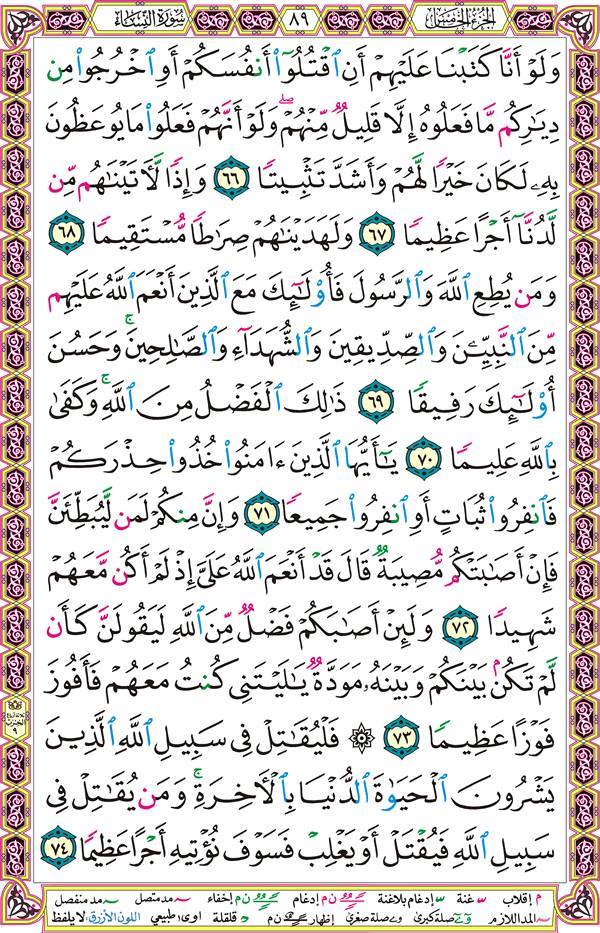 الجزء الخامس ٨٩ سورة النساء
وَلَوْ أَنَّا كَتَبْنَا عَلَيْهِمْ أَنِ ٱقْتُلُوٓا۟ أَنفُسَكُمْ أَوِ ٱخْرُجُوا۟ مِن
دِيَٰرِكُم مَّا فَعَلُوهُ إِلَّا قَلِيلٌ مِّنْهُمْ ۖ وَلَوْ أَنَّهُمْ فَعَلُوا۟ مَا يُوعَظُونَ
بِهِۦ لَكَانَ خَيْرًا لَّهُمْ وَأَشَدَّ تَثْبِيتًا ٦٦ وَإِذًا لَّءَاتَيْنَٰهُم مِّن
لَّدُنَّآ أَجْرًا عَظِيمًا ٦٧ وَلَهَدَيْنَٰهُمْ صِرَٰطًا مُّسْتَقِيمًا ٦٨
وَمَن يُطِعِ ٱللَّهَ وَٱلرَّسُولَ فَأُو۟لَٰٓئِكَ مَعَ ٱلَّذِينَ أَنْعَمَ ٱللَّهُ عَلَيْهِم
مِّنَ ٱلنَّبِيِّۦنَ وَٱلصِّدِّيقِينَ وَٱلشُّهَدَآءِ وَٱلصَّٰلِحِينَ ۚ وَحَسُنَ
أُو۟لَٰٓئِكَ رَفِيقًا ٦٩ ذَٰلِكَ ٱلْفَضْلُ مِنَ ٱللَّهِ ۚ وَكَفَىٰ
بِٱللَّهِ عَلِيمًا ٧٠ يَٰٓأَيُّهَا ٱلَّذِينَ ءَامَنُوا۟ خُذُوا۟ حِذْرَكُمْ
فَٱنفِرُوا۟ ثُبَاتٍ أَوِ ٱنفِرُوا۟ جَمِيعًا ٧١ وَإِنَّ مِنكُمْ لَمَن لَّيُبَطِّئَنَّ
فَإِنْ أَصَٰبَتْكُم مُّصِيبَةٌ قَالَ قَدْ أَنْعَمَ ٱللَّهُ عَلَىَّ إِذْ لَمْ أَكُن مَّعَهُمْ
شَهِيدًا ٧٢ وَلَئِنْ أَصَٰبَكُمْ فَضْلٌ مِّنَ ٱللَّهِ لَيَقُولَنَّ كَأَن
لَّمْ تَكُنۢ بَيْنَكُمْ وَبَيْنَهُۥ مَوَدَّةٌ يَٰلَيْتَنِى كُنتُ مَعَهُمْ فَأَفُوزَ
فَوْزًا عَظِيمًا ٧٣ ۞ فَلْيُقَٰتِلْ فِى سَبِيلِ ٱللَّهِ ٱلَّذِينَ
يَشْرُونَ ٱلْحَيَوٰةَ ٱلدُّنْيَا بِٱلْءَاخِرَةِ ۚ وَمَن يُقَٰتِلْ فِى
سَبِيلِ ٱللَّهِ فَيُقْتَلْ أَوْ يَغْلِبْ فَسَوْفَ نُؤْتِيهِ أَجْرًا عَظِيمًا ٧٤
م إقلاب غنة إدغام بلاغنة ن م إدغام ن م إخفاء مد متصل مد منفصل
المد اللازم صلة كبرى صلة صغرى إظهار ن م قلقلة اوى؛ طبيعي اللون الأزرق: لا يلفظ